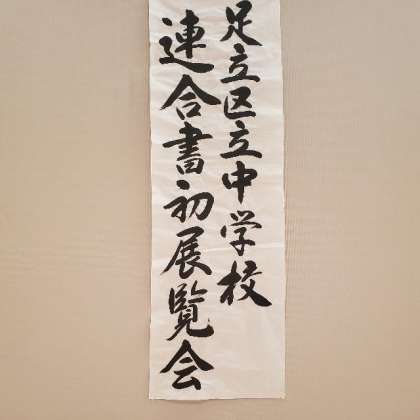 足立区立中学校
連合書初展覧会